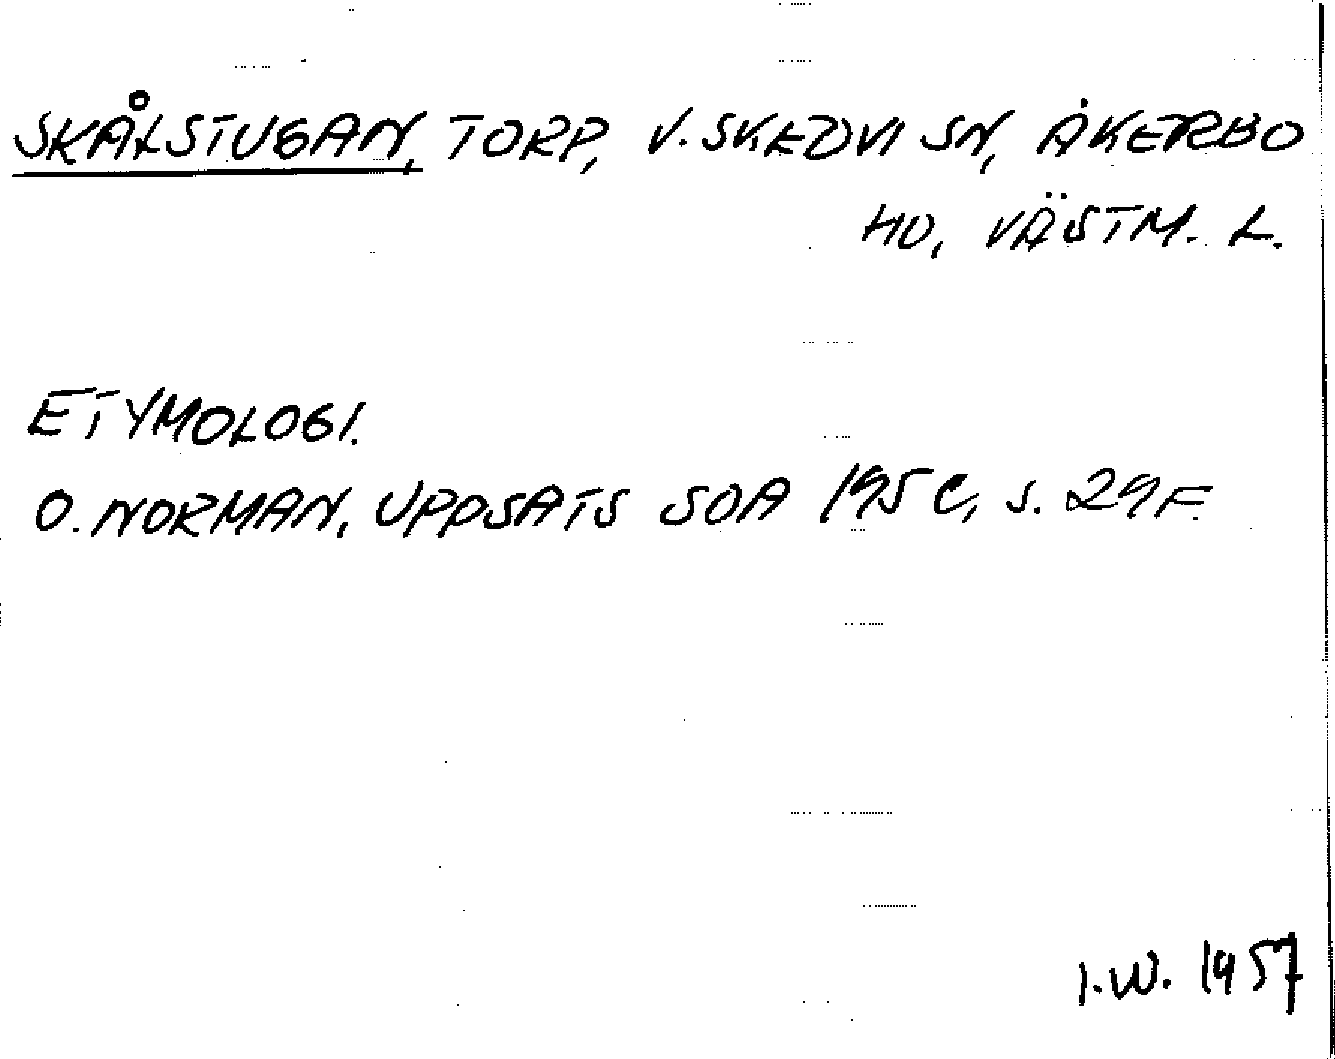 SKÅLSTUGAN, TORP, V. SKEDVI SN, ÅKERBO
HD, VÄSTM. L.
ETYMOLOGI.
O. NORMAN, UPPSATS SOA 195C, S. 29F.
I.W. 1957